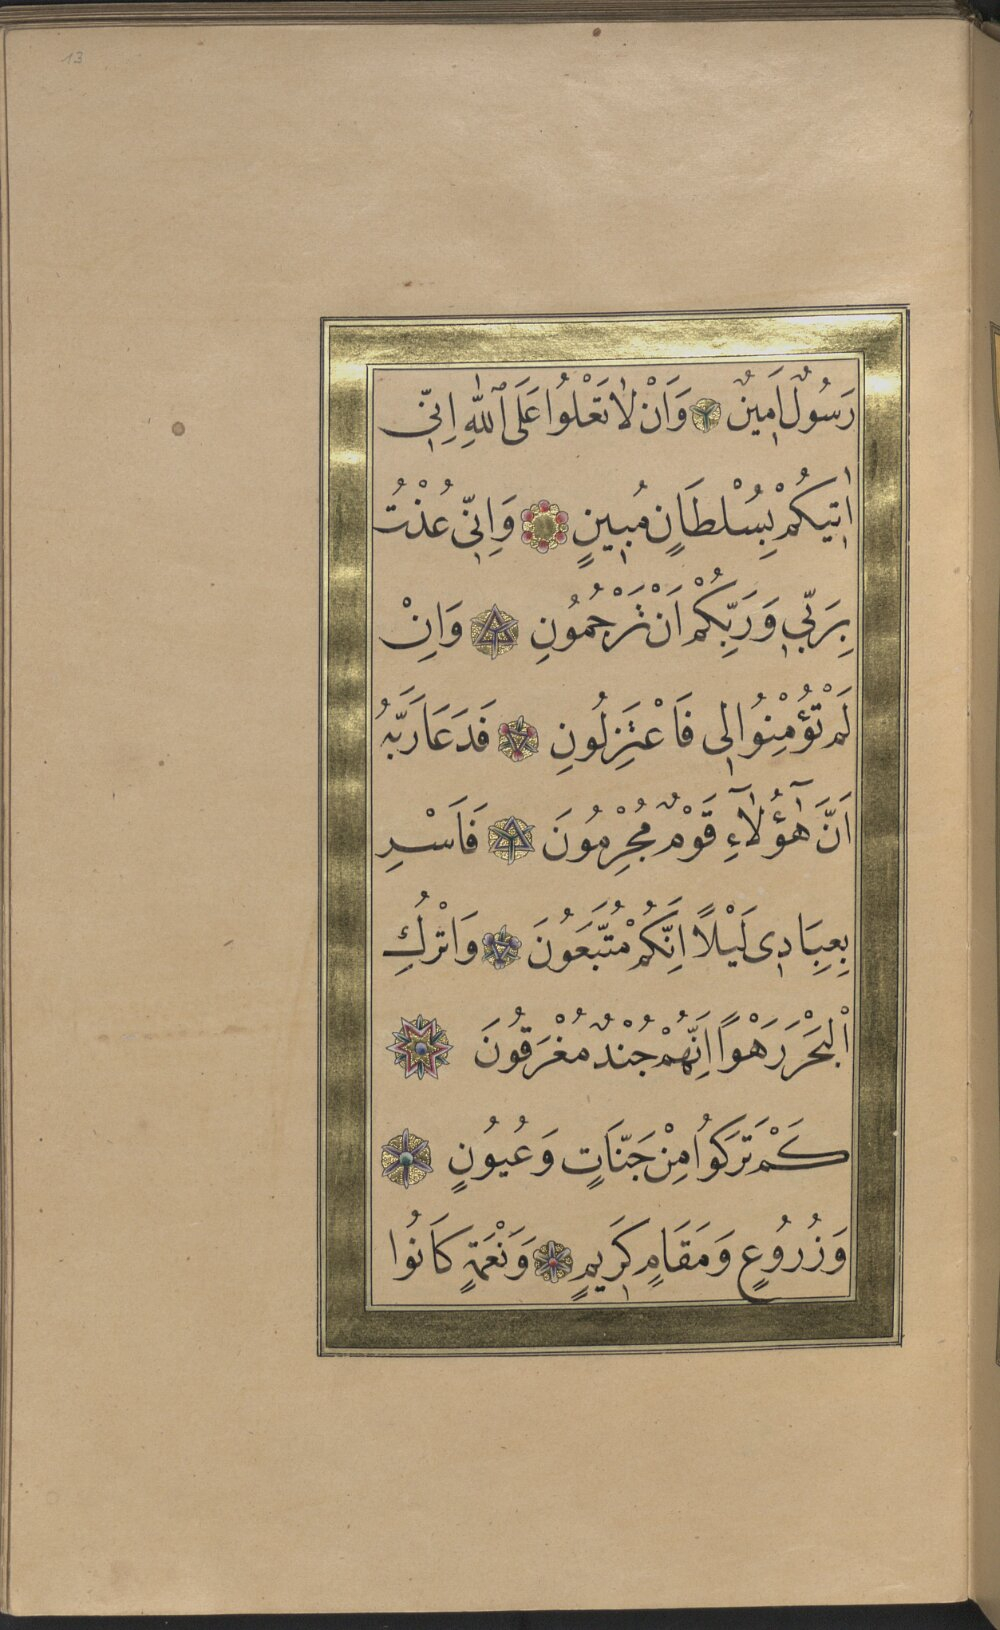 13
رَسُولٌ اَمِينٌ وَاَنْ لَا تَعْلُوا عَلَى اللّٰهِ اِنّٖى
اٰتٖيكُمْ بِسُلْطَانٍ مُبٖينٍ وَاِنّٖى عُذْتُ
بِرَبّٖى وَرَبِّكُمْ اَنْ تَرْجُمُونِ وَاِنْ
لَمْ تُؤْمِنُوا لٖى فَاعْتَزِلُونِ فَدَعَا رَبَّهُ
اَنَّ هٰٓؤُلَٓاءِ قَوْمٌ مُجْرِمُونَ فَاَسْرِ
بِعِبَادٖى لَيْلًا اِنَّكُمْ مُتَّبَعُونَ وَاتْرُكِ
الْبَحْرَ رَهْوًا اِنَّهُمْ جُنْدٌ مُغْرَقُونَ
كَمْ تَرَكُوا مِنْ جَنَّاتٍ وَعُيُونٍ
وَزُرُوعٍ وَمَقَامٍ كَرٖيمٍ وَنَعْمَةٍ كَانُوا